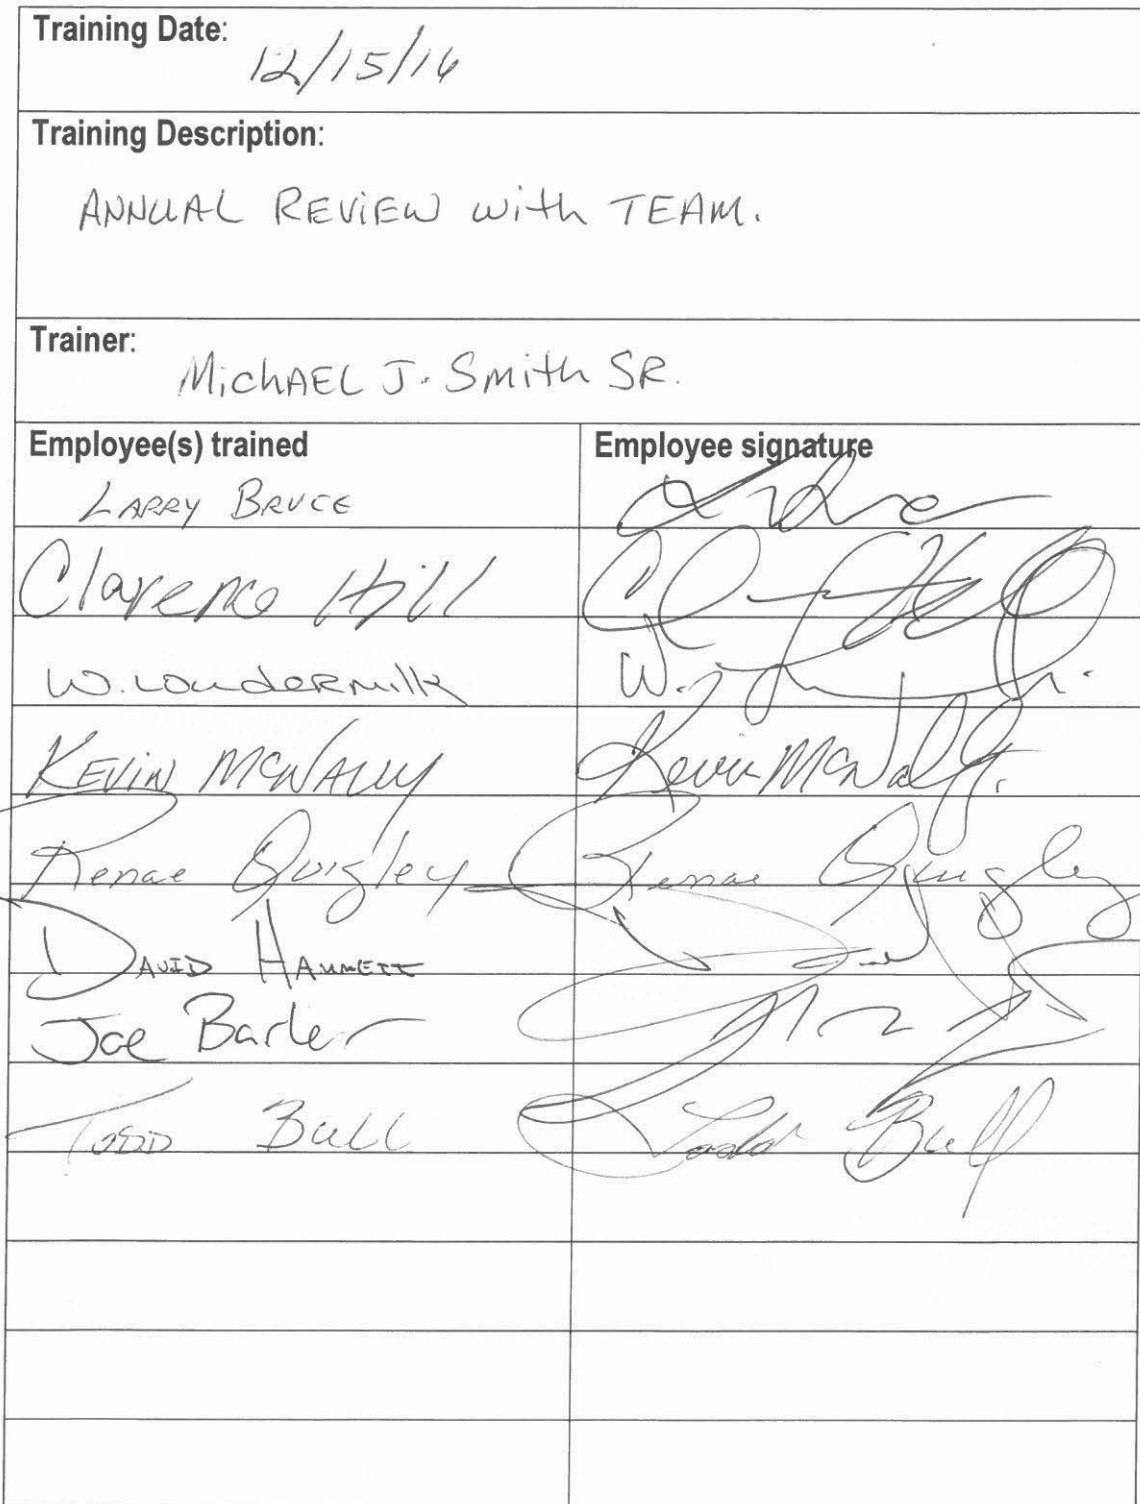 Training Date:
12/15/16
Training Description:
ANNUAL REVIEW with TEAM.
Trainer:
MichAEL J. Smith SR.
Employee(s) trained Employee signature
LARRY BRUCE
Clarence Hill
W. LoudeRmilk W.
KEVIN MCNALLY Kevin McNally
Renae Quigley Renae Quigley
DAVID HAMMETT
Joe Barler
TODD BULL Todd Bull